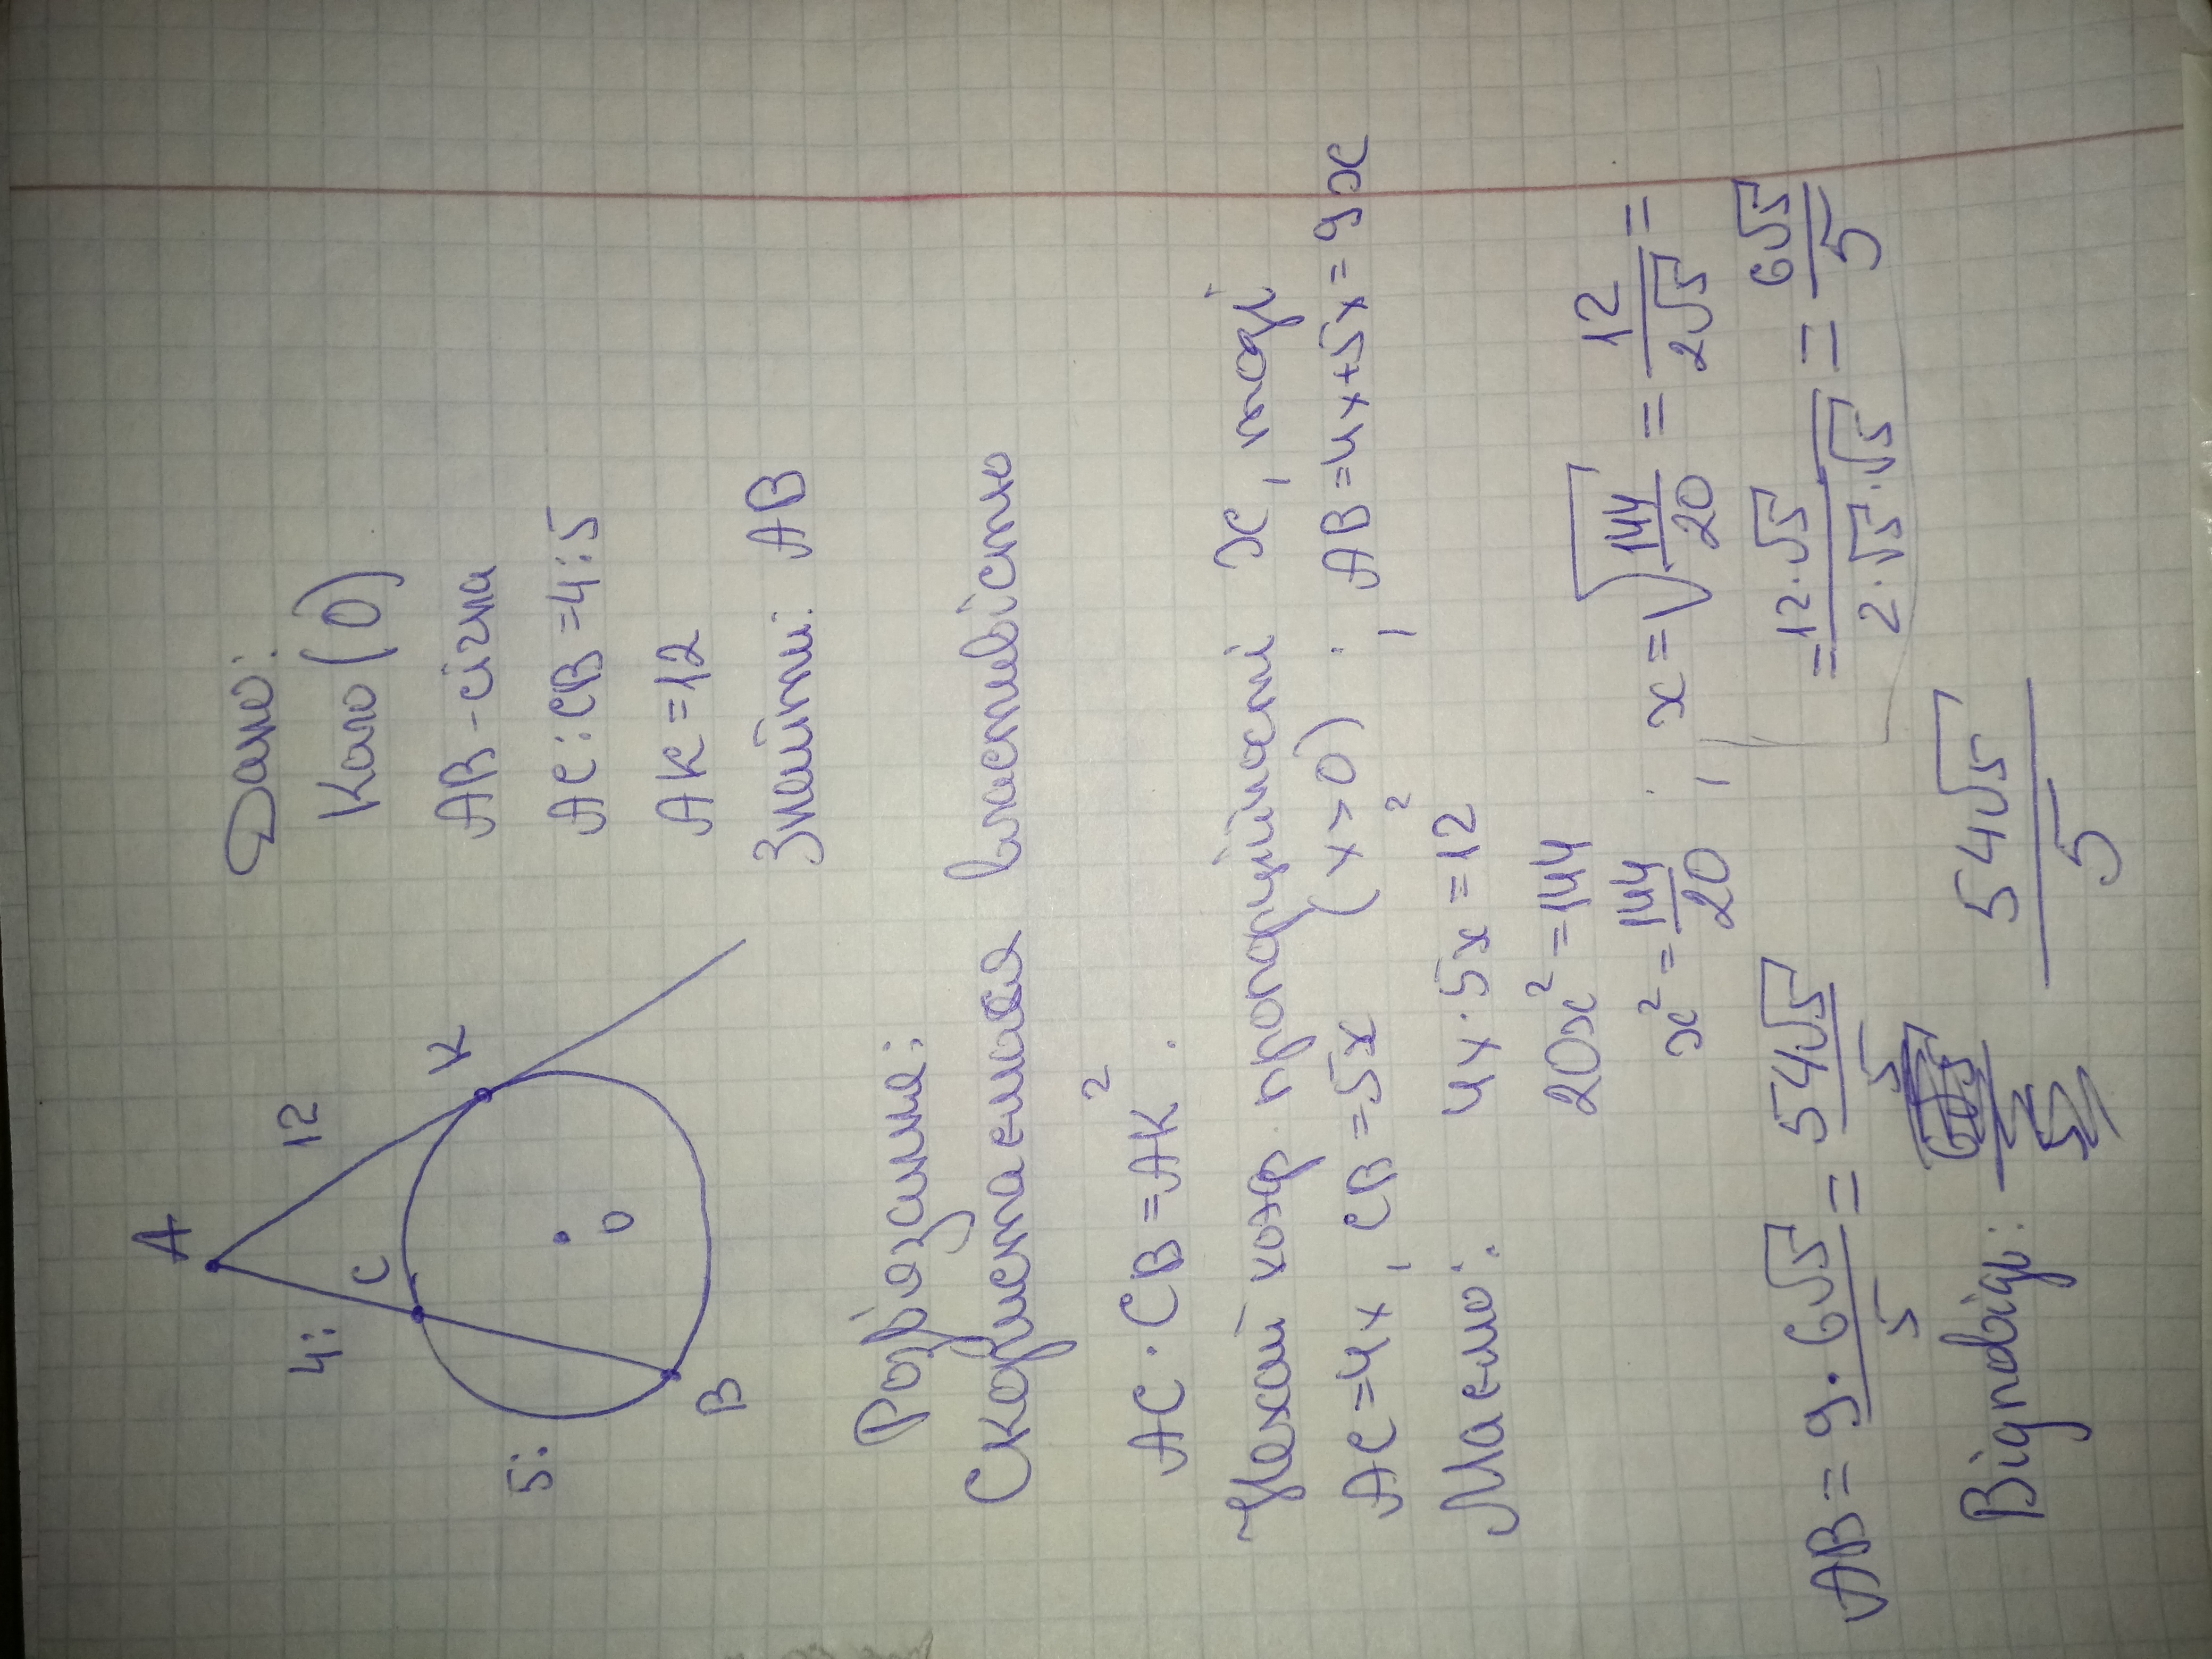 A
12
K
4:
C
O
5:
B
Дано:
Коло (O)
AB - січна
AC:CB=4:5
AK=12
Знайти: AB
Розв'язання:
Скористаємося властивістю
AC · CB = AK².
Нехай коеф. пропорційності x, тоді
AC=4x, CB=5x (x>0); AB=4x+5x=9x
Маємо: 4x · 5x = 12²
20x² = 144
x² = 144/20; x = √(144/20) = 12/(2√5) =
= (12·√5)/(2·√5·√5) = 6√5/5
AB = (9·6√5)/5 = 54√5/5
Відповідь: 54√5/5